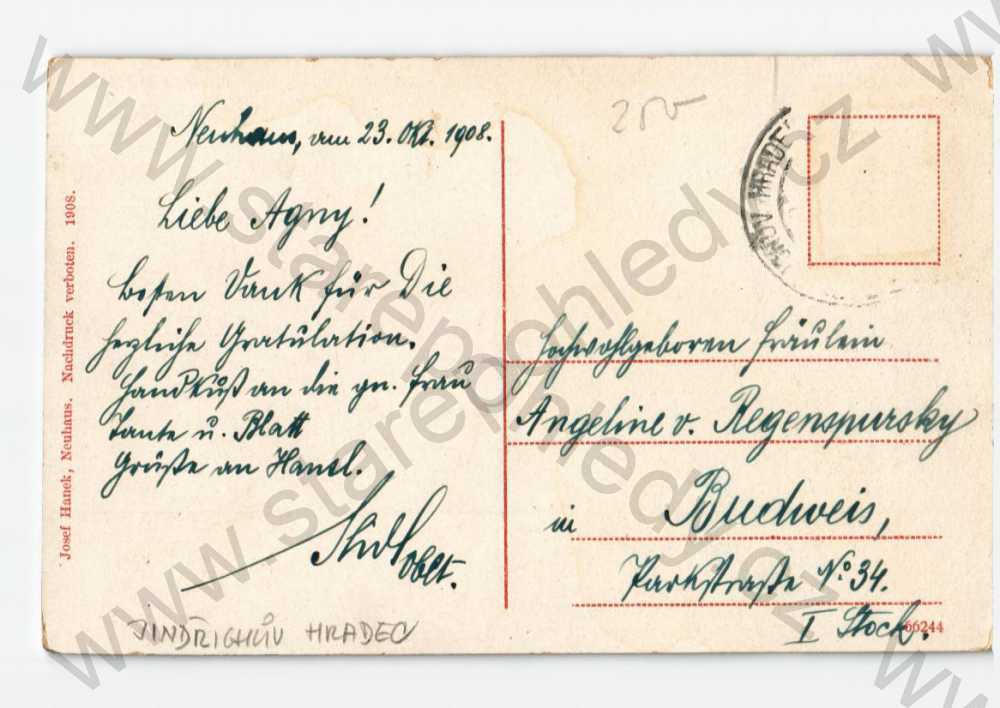 Neuhaus, am 23. Okt. 1908.
Liebe Agny!
Besten Dank für Die
herzliche Gratulation.
Handkuß an die gn. Frau
Tante u. Blatt
Grüße an Hansl.
oblt.
JINDŘICHŮV HRADEC
Josef Hanek, Neuhaus. Nachdruck verboten. 1908.
250
HRADE
Hochwohlgeboren Fräulein
Angeline v. Regenspursky
in Budweis,
Parkstraße No 34.
I Stock.
66244
www.starepohledy.cz